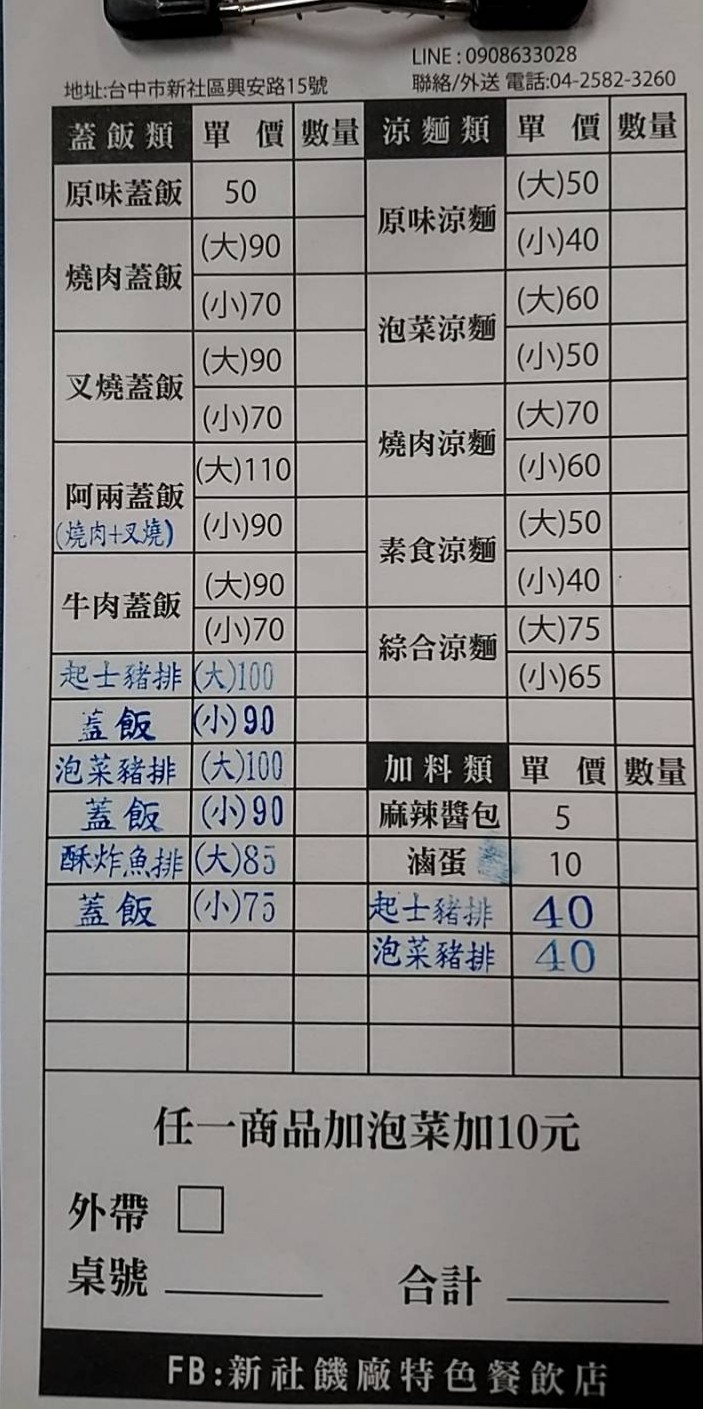 LINE : 0908633028
地址:台中市新社區興安路15號 聯絡/外送 電話:04-2582-3260
蓋飯類 單價 數量 涼麵類 單價 數量
原味蓋飯 50 原味涼麵 (大)50
(小)40
燒肉蓋飯 (大)90
(小)70
泡菜涼麵 (大)60
(小)50
叉燒蓋飯 (大)90
(小)70
燒肉涼麵 (大)70
(小)60
阿兩蓋飯 (大)110
(燒肉+叉燒) (小)90
素食涼麵 (大)50
(小)40
牛肉蓋飯 (大)90
(小)70
綜合涼麵 (大)75
(小)65
起士豬排 (大)100
蓋飯 (小)90
泡菜豬排 (大)100 加料類 單價 數量
蓋飯 (小)90 麻辣醬包 5
酥炸魚排 (大)85 滷蛋 10
蓋飯 (小)75 起士豬排 40
泡菜豬排 40
任一商品加泡菜加10元
外帶
桌號 合計
FB:新社饑廠特色餐飲店